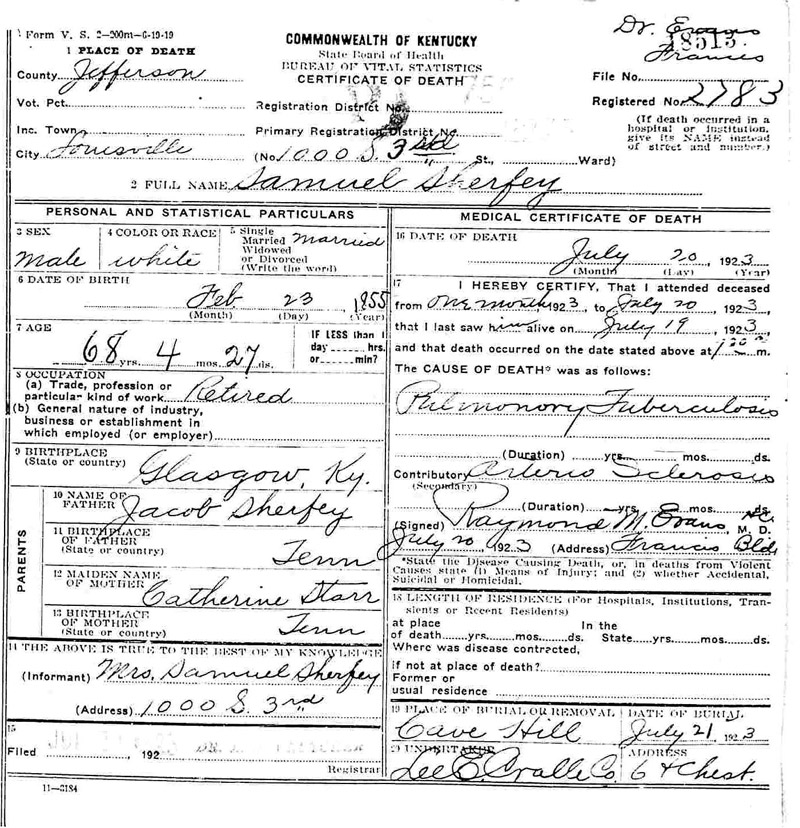 Form V. S. 2—200m—6-19-19
1 PLACE OF DEATH
County Jefferson
Vot. Pct.
Inc. Town
City Louisville
COMMONWEALTH OF KENTUCKY
State Board of Health
BUREAU OF VITAL STATISTICS
CERTIFICATE OF DEATH
Registration District No.
Primary Registration District No.
(No. 1000 S. 3rd St., Ward)
Dr. Evans
Francis
18513
File No.
Registered No. 2783
(If death occurred in a
hospital or institution,
give its NAME instead
of street and number.)
2 FULL NAME Samuel Sherfey
PERSONAL AND STATISTICAL PARTICULARS
3 SEX
male
4 COLOR OR RACE
white
5 Single
Married
Widowed
or Divorced
(Write the word)
Married
6 DATE OF BIRTH
Feb 23 1855
(Month) (Day) (Year)
7 AGE
68 yrs. 4 mos. 27 ds.
IF LESS than 1
day hrs.
or min?
8 OCCUPATION
(a) Trade, profession or
particular kind of work Retired
(b) General nature of industry,
business or establishment in
which employed (or employer)
9 BIRTHPLACE
(State or country)
Glasgow, Ky.
PARENTS
10 NAME OF
FATHER Jacob Sherfey
11 BIRTHPLACE
OF FATHER
(State or country) Tenn
12 MAIDEN NAME
OF MOTHER Catherine Starr
13 BIRTHPLACE
OF MOTHER
(State or country) Tenn
14 THE ABOVE IS TRUE TO THE BEST OF MY KNOWLEDGE
(Informant) Mrs. Samuel Sherfey
(Address) 1000 S. 3rd
15
Filed 192
Registrar
11—3184
MEDICAL CERTIFICATE OF DEATH
16 DATE OF DEATH
July 20, 1923
(Month) (Day) (Year)
17 I HEREBY CERTIFY, That I attended deceased
from One month, 1923, to July 20, 1923,
that I last saw him alive on July 19, 1923,
and that death occurred on the date stated above at m.
The CAUSE OF DEATH* was as follows:
Pulmonory Tuberculosis
(Duration) yrs. mos. ds.
Contributory Arterio Sclerosis
(Secondary)
(Duration) yrs. mos. ds.
(Signed) Raymond M. Evans, M. D.
July 20 1923 (Address) Francis Bldg
*State the Disease Causing Death, or, in deaths from Violent
Causes state (1) Means of Injury; and (2) whether Accidental,
Suicidal or Homicidal.
18 LENGTH OF RESIDENCE (For Hospitals, Institutions, Tran-
sients or Recent Residents)
at place In the
of death yrs. mos. ds. State yrs. mos. ds.
Where was disease contracted,
if not at place of death?
Former or
usual residence
19 PLACE OF BURIAL OR REMOVAL
Cave Hill
DATE OF BURIAL
July 21 1923
20 UNDERTAKER
Lee E. Cralle Co.
ADDRESS
6 & Chest.